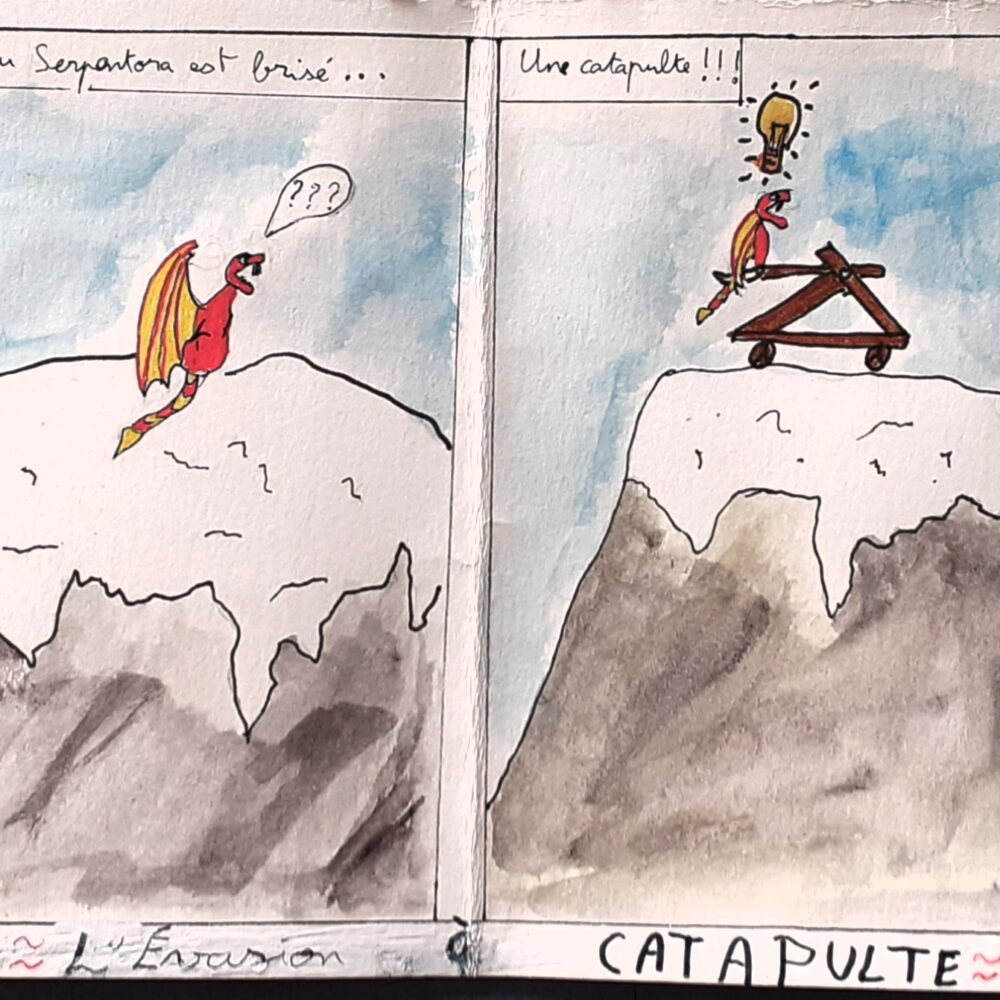 Serpentora est brisé...
???
Une catapulte !!!
L'Évasion
à
CATAPULTE